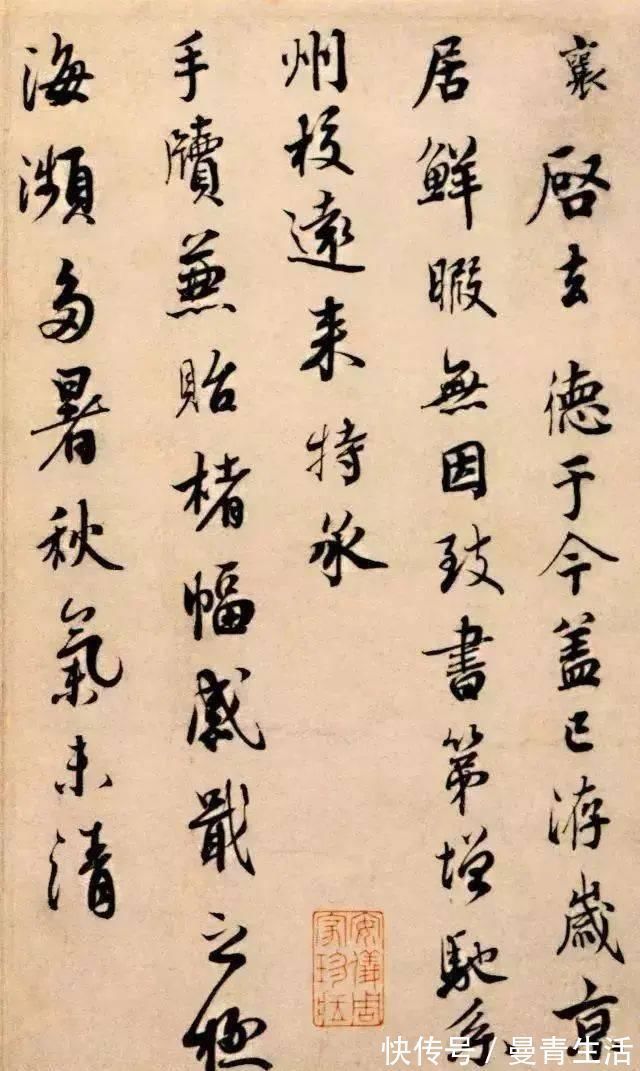 襄啓去德于今盖已洊歲京
居鮮暇無因致書第增馳系
州校遠来特承
手牘兼貽楮幅感戢之極
海瀕多暑秋氣未清
安儀周家珍藏
快传号 / 曼青生活